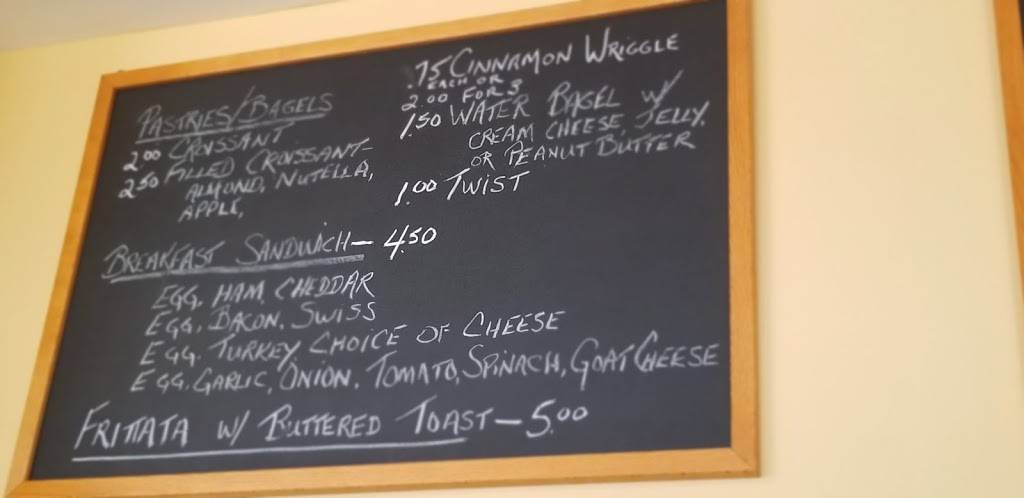 PASTRIES/BAGELS
2.00 CROISSANT
2.50 FILLED CROISSANT-
ALMOND, NUTELLA,
APPLE,
.75 CINNAMON WRIGGLE
EACH OR
2.00 FOR 3
1.50 WATER BAGEL W/
CREAM CHEESE, JELLY,
OR PEANUT BUTTER
1.00 TWIST
BREAKFAST SANDWICH - 4.50
EGG, HAM, CHEDDAR
EGG, BACON, SWISS
EGG, TURKEY, CHOICE OF CHEESE
EGG, GARLIC, ONION, TOMATO, SPINACH, GOAT CHEESE
FRITTATA W/ BUTTERED TOAST - 5.00